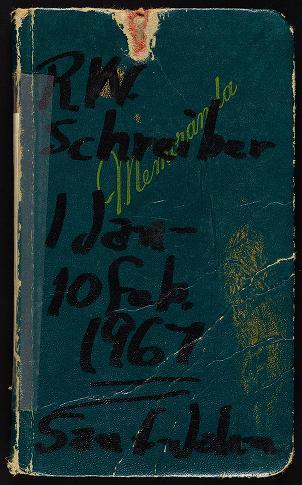 R.W.
Schreiber
Memoranda
1 Jan -
10 Feb.
1967